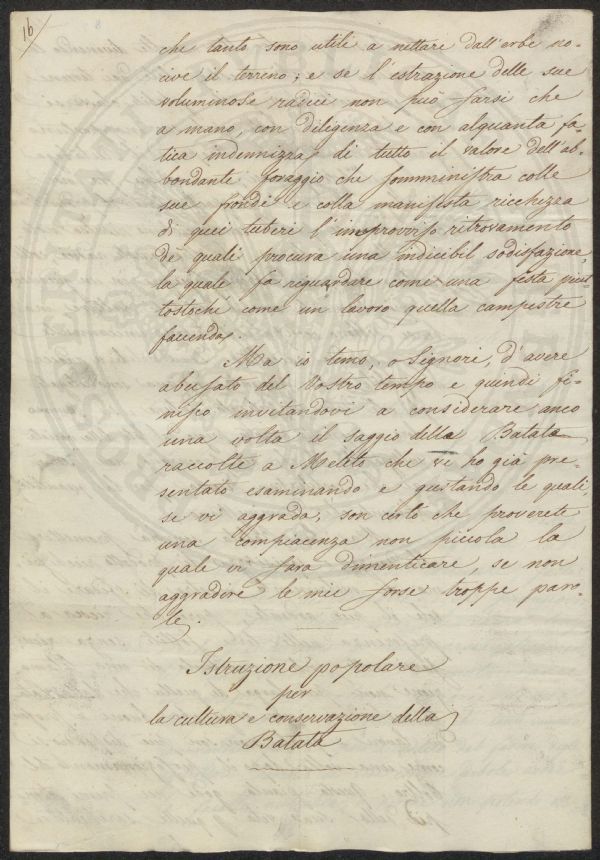 16
che tanto sono utili a nettare dall'erbe no-
cive il terreno; e se l'estrazione delle sue
voluminose radici non può farsi che
a mano, con diligenza e con alquanta fa-
tica indennizza di tutto il valore dell'ab-
bondante foraggio che somministra colle
sue frondi e colla manifesta ricchezza
di quei tuberi l'improvviso ritrovamento
de' quali procura una indicibil sodisfazione,
la quale fa riguardare come una festa piut-
tostochè come un lavoro quella campestre
faccenda.
Ma io temo, o Signori, d'avere
abusato del Vostro tempo e quindi fi-
nisco invitandovi a considerare anco
una volta il saggio della Batata
raccolte a Meleto che vi ho già pre-
sentato esaminando e gustando le quali,
se vi aggrada, son certo che proverete
una compiacenza non piccola la
quale vi farà dimenticare, se non
aggradire le mie forse troppe paro-
le.
Istruzione popolare
per
la cultura e conservazione della
Batata